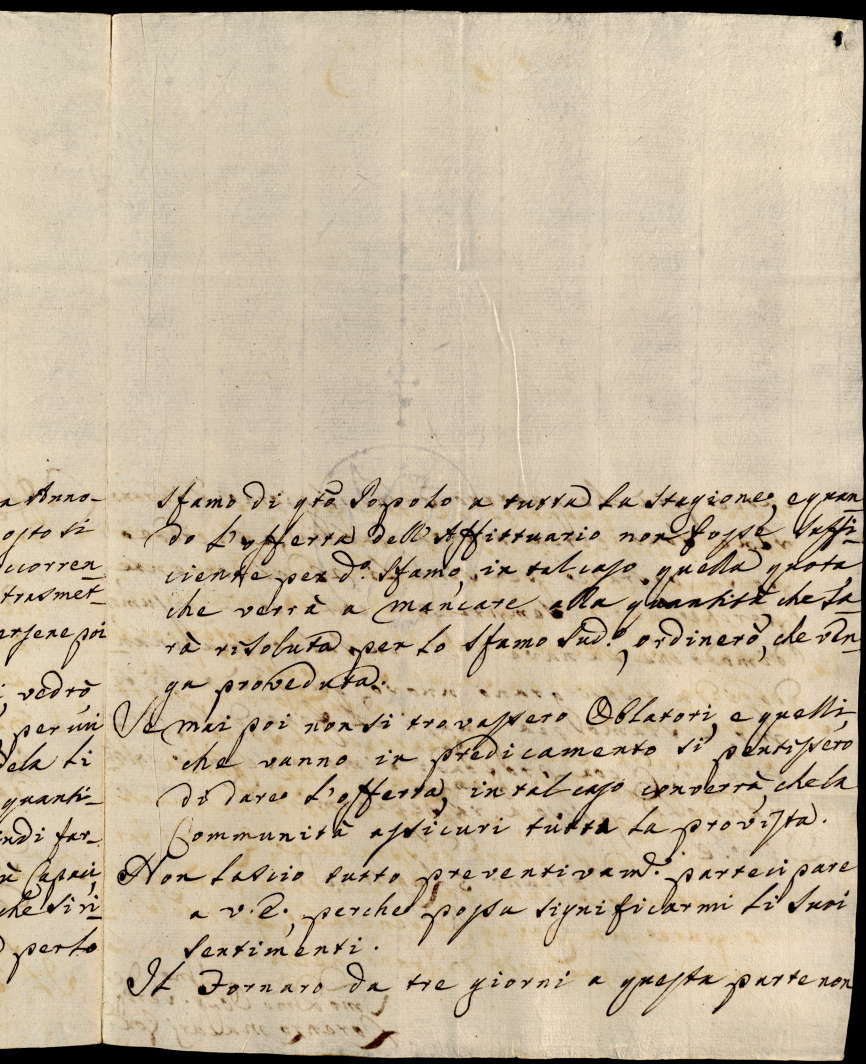 a Anno-
osto si
ccorren
trasmet-
ersene poi
i, vedrò
per un
dela li
quanti-
indi far-
à capaci,
che si ri-
perlo
sfamo di qto Popolo a tutta la stagione, e quan
do l'offerta dell'Affittuario non fosse suffi-
ciente per do. sfamo, in tal caso quella quota
che verrà a mancare alla quantità che sa-
rà risoluta per lo sfamo sudo., ordinerò, che ven-
ga proveduta.
Se mai poi non si trovassero Oblatori, e quelli,
che vanno in predicamento si pentissero
di dare l'offerta, in tal caso converrà, che la
Communità assicuri tutta la provista.
Non lascio tutto preventivamte. partecipare
a V.E., perche possa significarmi li suoi
sentimenti.
Il Fornaro da tre giorni a questa parte non